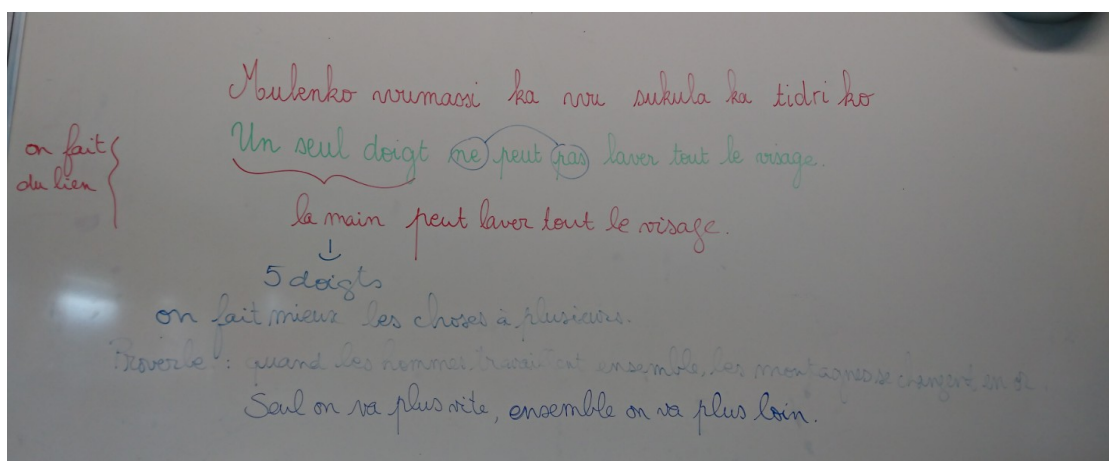 Mulenko wumassi ka wu sukula ka tidri ko
on fait
du lien
Un seul doigt ne peut pas laver tout le visage.
la main peut laver tout le visage.
5 doigts
on fait mieux les choses à plusieurs.
Proverbe : quand les hommes travaillent ensemble, les montagnes se changent en or.
Seul on va plus vite, ensemble on va plus loin.